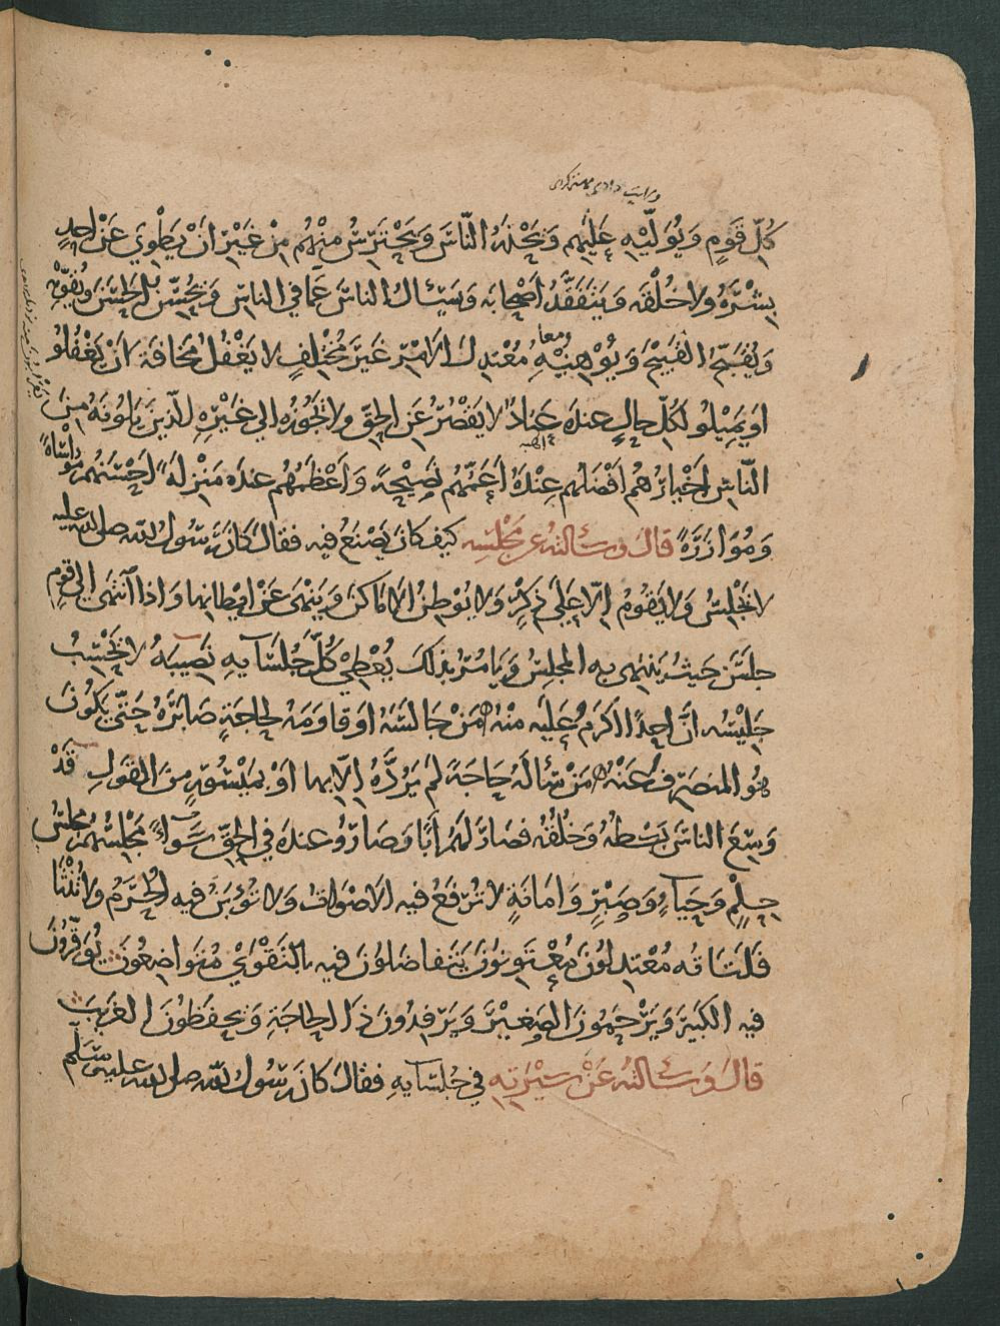 كُلِّ قَوْمٍ وَيُوَلِّيْهِ عَلَيْهِم وَيَحْذَرُ النَّاسَ وَيَحْتَرِسُ مِنْهُمْ مِنْ غَيْرِ اَنْ يَطْوِيَ عَنْ اَحِدٍ
بِشْرَهُ وَلَا خُلْقَه وَيَتَفَقَّدُ اَصْحَابَه وَيَسْئَالُ النَّاسَ عَمَّا فِي النَّاسِ وَيُحَسِّنُ الْحَسَنَ وَيُقَوِّيْهِ
وَيُقَبِّحُ القَبِيْحَ وَيُوْهِيْنِهِ مُعْتَدِلَ الْاَمْرِ غَيْرَ مُخْتَلِفٍ لَا يَغْفُلُ مَخَافَةَ اَنْ يَغْفُلُو
اَوْ يَمِيْلُو لِكُلِّ حَالٍ عِنْدَه عَتَادٌ لَا يَقْصُرُ عَنِ الْحَقِّ وَلَا يَجُوْزُه اِلَى غَيْرِهِ الَّذِيْنَ يَلُوْنَهُ مِنَ
النَّاسِ اَخْيَارُهُمْ اَفْضَلُهم عِنْدَهُ اَعَمُّهُم نَصِيْحَةً وَاَعْظَمُهُم عِنْدَه مَنْزِلَةً اَحْسَنُهُم مُوَاسَاةً
وَمُوَازَرَةً قَالَ وَسَئَالتُه عن مَجْلِسِه كيف كان يَصْنَعُ فيه فقال كَانَ رَسُولُ الله صلى الله عليه
لا يَجْلِسُ وَلَا يَقُومُ اِلَّا عَلَى ذِكْرٍ وَلَا يُوْطِنُ الْاَمَاكِنَ وَيَنْهَى عَنْ اِيْطَانِهَا وَاِذَا انْتَهَى اِلَى قَوْمٍ
جَلَسَ حَيْثُ يَنْتَهِى بِهِ المَجْلِسُ وَيَامُرُ بِذَلِكَ يُعْطِي كُلَّ جُلَسَايِهِ نَصِيْبَهُ لَا يَحْسَبُ
جَلِيْسُه اَنَّ اَحِدًا اَكْرَمُ عَلَيْهِ مِنْهُ مَنْ جَالَسَهُ اَوْ قَاوَمَهُ لِحَاجَةٍ صَابَرَهُ حَتَّى يَكُوْنَ
هُوَ المُنْصَرِفُ عَنْهُ مَنْ سَئَالَهُ حَاجَةً لَمْ يَرُدَّهُ اِلَّا بِهَا اَوْ بِمَيْسُوْرٍ مِنَ القَوْلِ قَدْ
وَسِعَ النَّاسَ بَسْطُهُ وَخُلُقُهُ فَصَارَ لَهُمْ اَبًا وَصَارُو عِنْدَه فِي الْحَقِّ سَوَاءً مَجْلِسُهُمْ مَجْلِسُ
حِلْمٍ وَحَيَاءٍ وَصَبْرٍ وَاَمَانَةٍ لَا تُرْفَعُ فِيه الْاَصْوَاتُ وَلَا تُؤْبَنُ فِيه الْحُرَمُ وَلَا تُنْثَا
فَلَتَاتُه مُعْتَدِلُوْنَ يَتَفَاضَلُوْنَ فِيهِ بِالتَّقْوَيْ مُتَوَاضِعُوْنَ يُوَقِّرُوْنَ
فِيهِ الْكَبِيْرَ وَيَرْحَمُوْنَ الصَّغِيْرَ وَيَرْفِدُوْنَ ذَا الْحَاجَةِ وَيَحْفَظُوْنَ الغَرِيْبَ
قَالَ وَسَئَالتُه عَنْ سِيْرَتِهِ فِي جُلَسَايِهِ فَقَالَ كَانَ رَسُولُ الله صلى الله عليه وسَلَّم